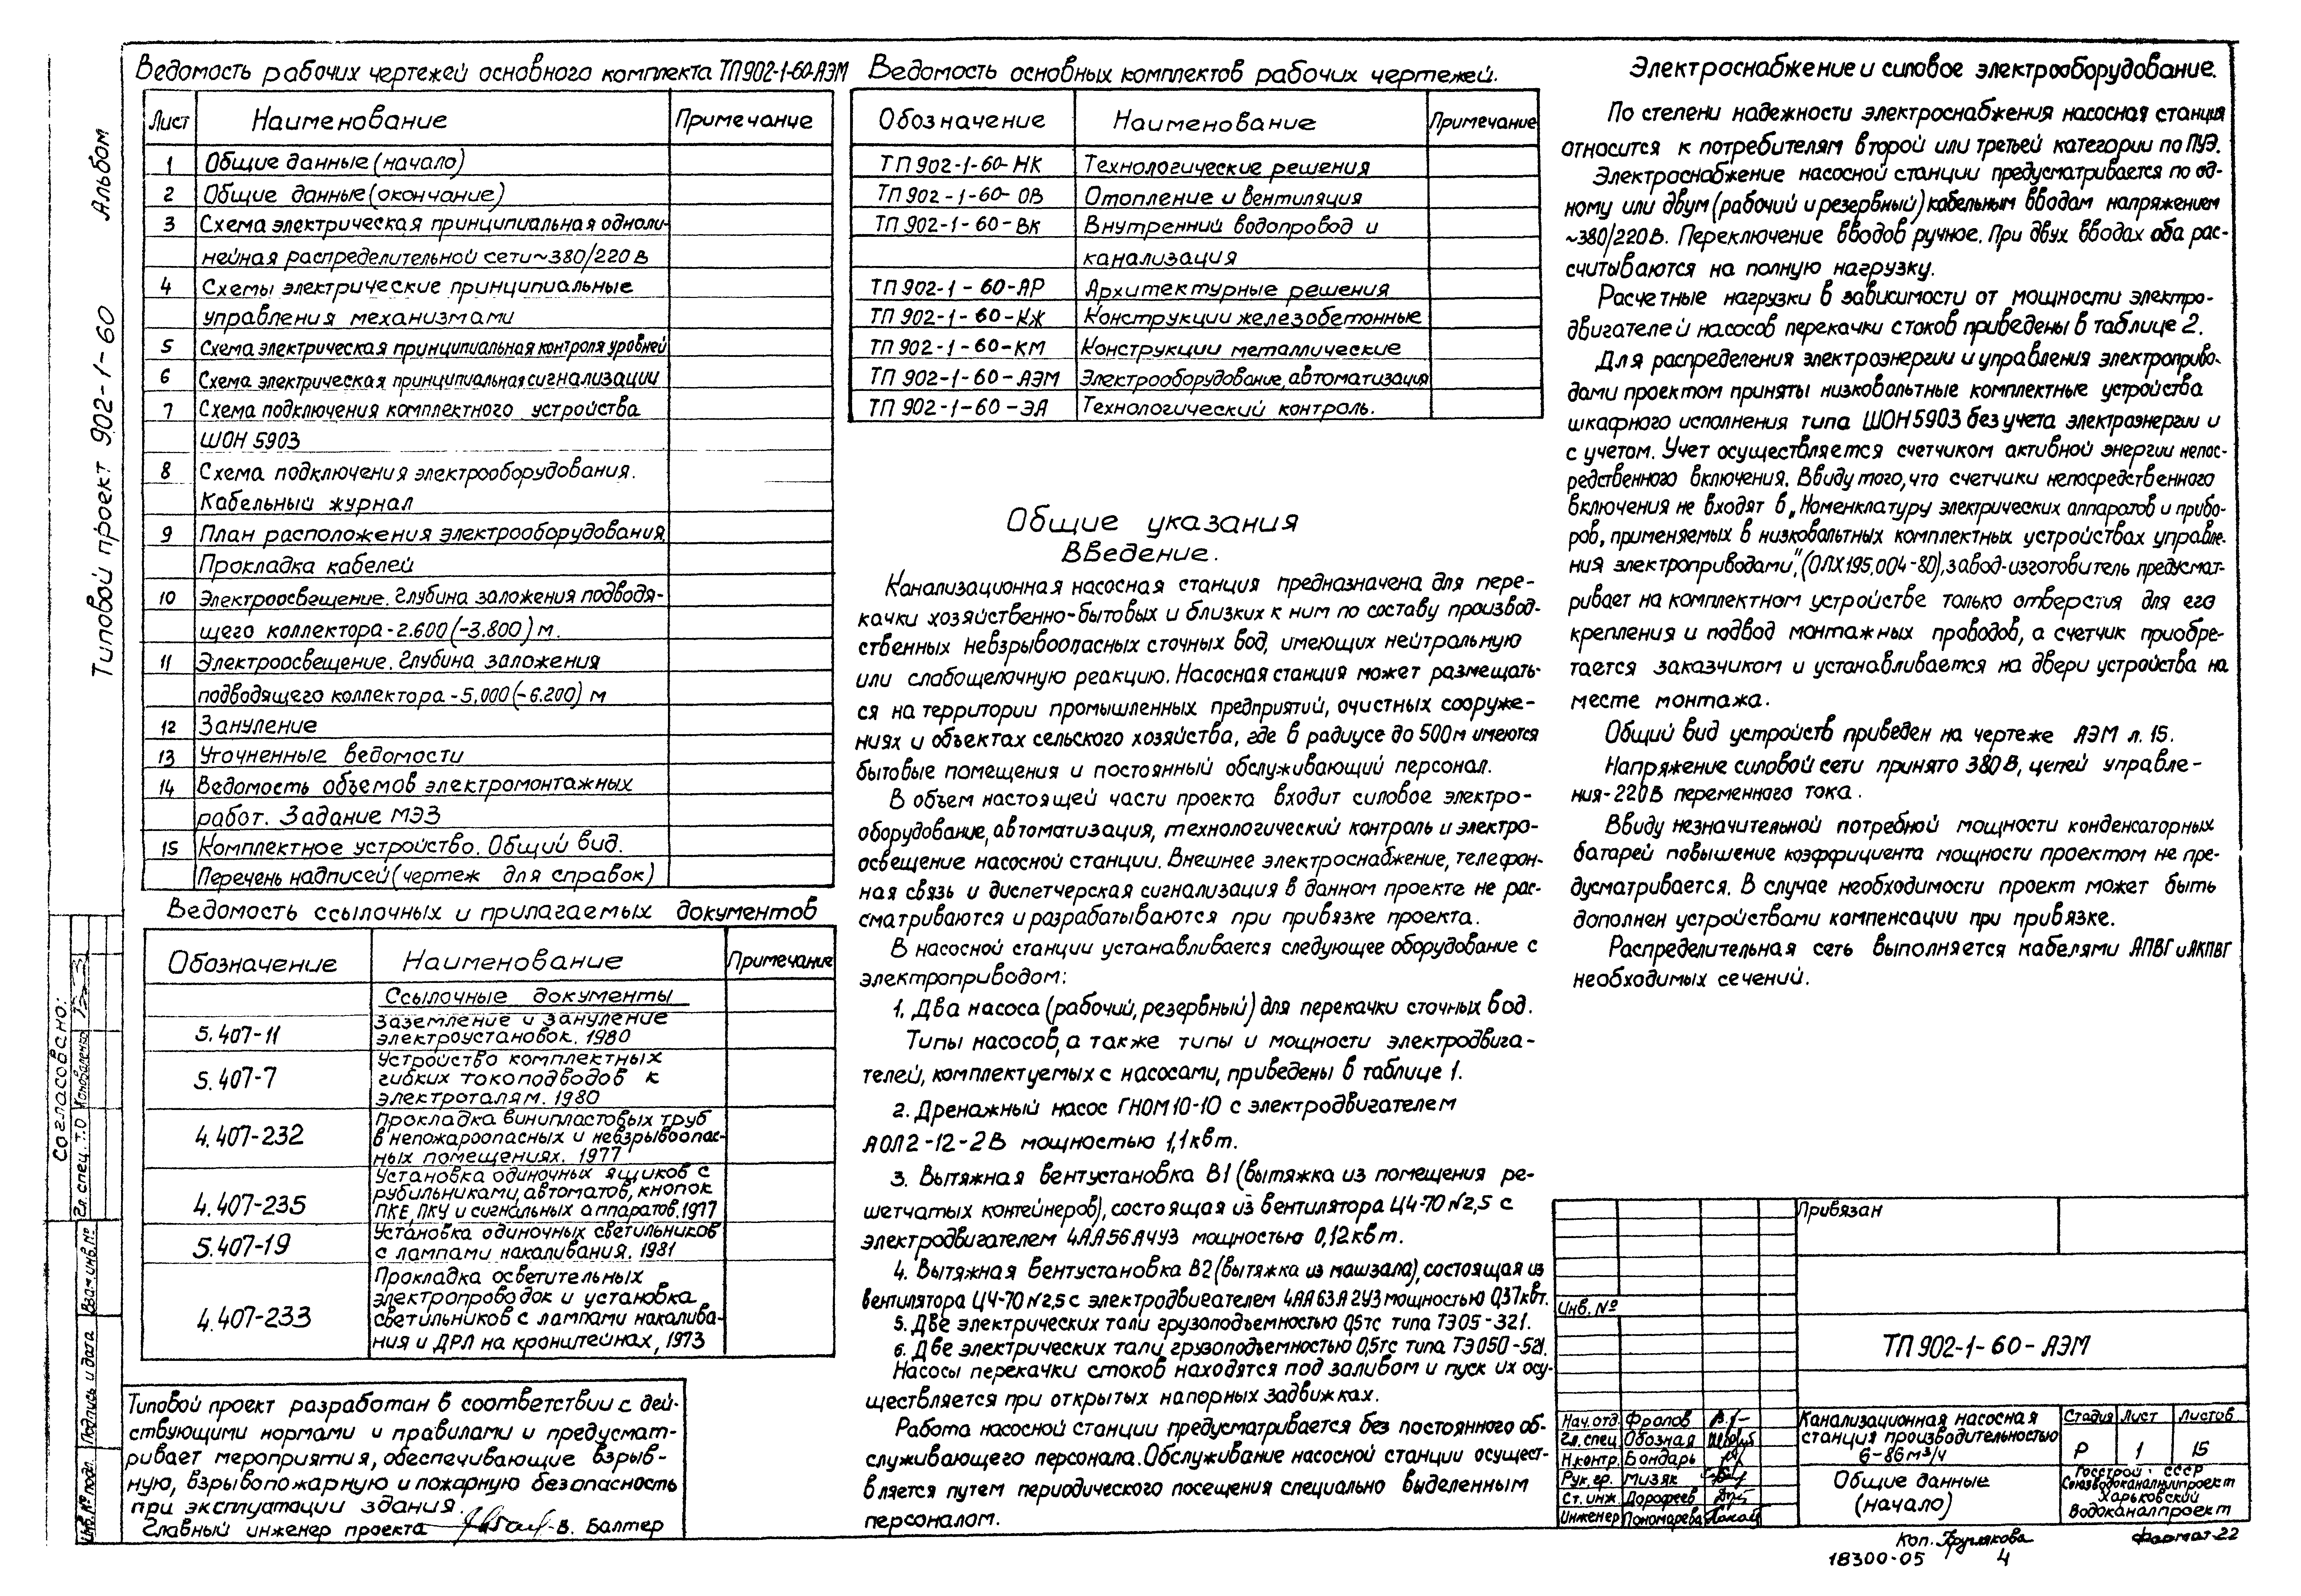 Альбом
Типовой проект 902-1-60
Ведомость рабочих чертежей основного комплекта ТП902-1-60-АЭМ
Лист Наименование Примечание
1 Общие данные (начало)
2 Общие данные (окончание)
3 Схема электрическая принципиальная одноли-
нейная распределительной сети ~380/220В
4 Схемы электрические принципиальные
управления механизмами
5 Схема электрическая принципиальная контроля уровней
6 Схема электрическая принципиальная сигнализации
7 Схема подключения комплектного устройства
ШОН 5903
8 Схема подключения электрооборудования.
Кабельный журнал
9 План расположения электрооборудования.
Прокладка кабелей
10 Электроосвещение. Глубина заложения подводя-
щего коллектора -2.600 (-3.800) м.
11 Электроосвещение. Глубина заложения
подводящего коллектора -5,000 (-6.200) м
12 Зануление
13 Уточненные ведомости
14 Ведомость объемов электромонтажных
работ. Задание МЭЗ
15 Комплектное устройство. Общий вид.
Перечень надписей (чертеж для справок)
Ведомость ссылочных и прилагаемых документов
Обозначение Наименование Примечание
Ссылочные документы
5.407-11 Заземление и зануление
электроустановок. 1980
5.407-7 Устройство комплектных
гибких токоподводов к
электроталям. 1980
4.407-232 Прокладка винипластовых труб
в непожароопасных и невзрывоопас-
ных помещениях. 1977
4.407-235 Установка одиночных ящиков с
рубильниками, автоматов, кнопок
ПКЕ, ПКУ и сигнальных аппаратов. 1977
5.407-19 Установка одиночных светильников
с лампами накаливания. 1981
4.407-233 Прокладка осветительных
электропроводок и установка
светильников с лампами накалива-
ния и ДРЛ на кронштейнах, 1973
Типовой проект разработан в соответствии с дей-
ствующими нормами и правилами и предусмат-
ривает мероприятия, обеспечивающие взрыв-
ную, взрывопожарную и пожарную безопасность
при эксплуатации здания.
Главный инженер проекта В. Балтер
Ведомость основных комплектов рабочих чертежей.
Обозначение Наименование Примечание
ТП 902-1-60-НК Технологические решения
ТП 902-1-60-ОВ Отопление и вентиляция
ТП 902-1-60-ВК Внутренний водопровод и
канализация
ТП 902-1-60-АР Архитектурные решения
ТП 902-1-60-КЖ Конструкции железобетонные
ТП 902-1-60-КМ Конструкции металлические
ТП 902-1-60-АЭМ Электрооборудование, автоматизация
ТП 902-1-60-ЭА Технологический контроль.
Общие указания
Введение.
Канализационная насосная станция предназначена для пере-
качки хозяйственно-бытовых и близких к ним по составу производ-
ственных невзрывоопасных сточных вод, имеющих нейтральную
или слабощелочную реакцию. Насосная станция может размещать-
ся на территории промышленных предприятий, очистных сооруже-
ниях и объектах сельского хозяйства, где в радиусе до 500м имеются
бытовые помещения и постоянный обслуживающий персонал.
В объем настоящей части проекта входит силовое электро-
оборудование, автоматизация, технологический контроль и электро-
освещение насосной станции. Внешнее электроснабжение, телефон-
ная связь и диспетчерская сигнализация в данном проекте не рас-
сматриваются и разрабатываются при привязке проекта.
В насосной станции устанавливается следующее оборудование с
электроприводом:
1. Два насоса (рабочий, резервный) для перекачки сточных вод.
Типы насосов, а также типы и мощности электродвига-
телей, комплектуемых с насосами, приведены в таблице 1.
2. Дренажный насос ГНОМ 10-10 с электродвигателем
АОЛ2-12-2В мощностью 1,1квт.
3. Вытяжная вентустановка В1 (вытяжка из помещения ре-
шетчатых контейнеров), состоящая из вентилятора Ц4-70 №2,5 с
электродвигателем 4АА56А4У3 мощностью 0,12квт.
4. Вытяжная вентустановка В2 (вытяжка из машзала), состоящая из
вентилятора Ц4-70 №2,5 с электродвигателем 4АА63А2У3 мощностью 0,37квт.
5. Две электрических тали грузоподъемностью 0,5тс типа ТЭ05-321.
6. Две электрических тали грузоподъемностью 0,5тс типа ТЭ050-521.
Насосы перекачки стоков находятся под заливом и пуск их осу-
ществляется при открытых напорных задвижках.
Работа насосной станции предусматривается без постоянного об-
служивающего персонала. Обслуживание насосной станции осущест-
вляется путем периодического посещения специально выделенным
персоналом.
Электроснабжение и силовое электрооборудование.
По степени надежности электроснабжения насосная станция
относится к потребителям второй или третьей категории по ПУЭ.
Электроснабжение насосной станции предусматривается по од-
ному или двум (рабочий и резервный) кабельным вводам напряжением
~380/220В. Переключение вводов ручное. При двух вводах оба рас-
считываются на полную нагрузку.
Расчетные нагрузки в зависимости от мощности электро-
двигателей насосов перекачки стоков приведены в таблице 2.
Для распределения электроэнергии и управления электроприво-
дами проектом приняты низковольтные комплектные устройства
шкафного исполнения типа ШОН5903 без учета электроэнергии и
с учетом. Учет осуществляется счетчиком активной энергии непос-
редственного включения. Ввиду того, что счетчики непосредственного
включения не входят в „Номенклатуру электрических аппаратов и прибо-
ров, применяемых в низковольтных комплектных устройствах управле-
ния электроприводами," (ОЛХ195.004-80), завод-изготовитель предусмат-
ривает на комплектном устройстве только отверстия для его
крепления и подвод монтажных проводов, а счетчик приобре-
тается заказчиком и устанавливается на двери устройства на
месте монтажа.
Общий вид устройств приведен на чертеже АЭМ л. 15.
Напряжение силовой сети принято 380В, цепей управле-
ния-220В переменного тока.
Ввиду незначительной потребной мощности конденсаторных
батарей повышение коэффициента мощности проектом не пре-
дусматривается. В случае необходимости проект может быть
дополнен устройствами компенсации при привязке.
Распределительная сеть выполняется кабелями АПВГ и АКПВГ
необходимых сечений.
Привязан
Инв. №
ТП 902-1-60-АЭМ
Нач. отд. Фролов
Гл. спец. Обозная
Н.контр. Бондарь
Рук. гр. Мизяк
Ст. инж. Дорофеев
Инженер Пономарева
Канализационная насосная
станция производительностью
6-86м³/ч
Стадия Лист Листов
Р 1 15
Общие данные
(начало)
Госстрой СССР
Союзводоканалниипроект
Харьковский
Водоканалпроект
Коп.
Формат 22
18300-05 4
Согласовано:
Гл. спец. Т.О Коноваленко
Взам.инв.№
Подпись и дата
Инв.№ подл.